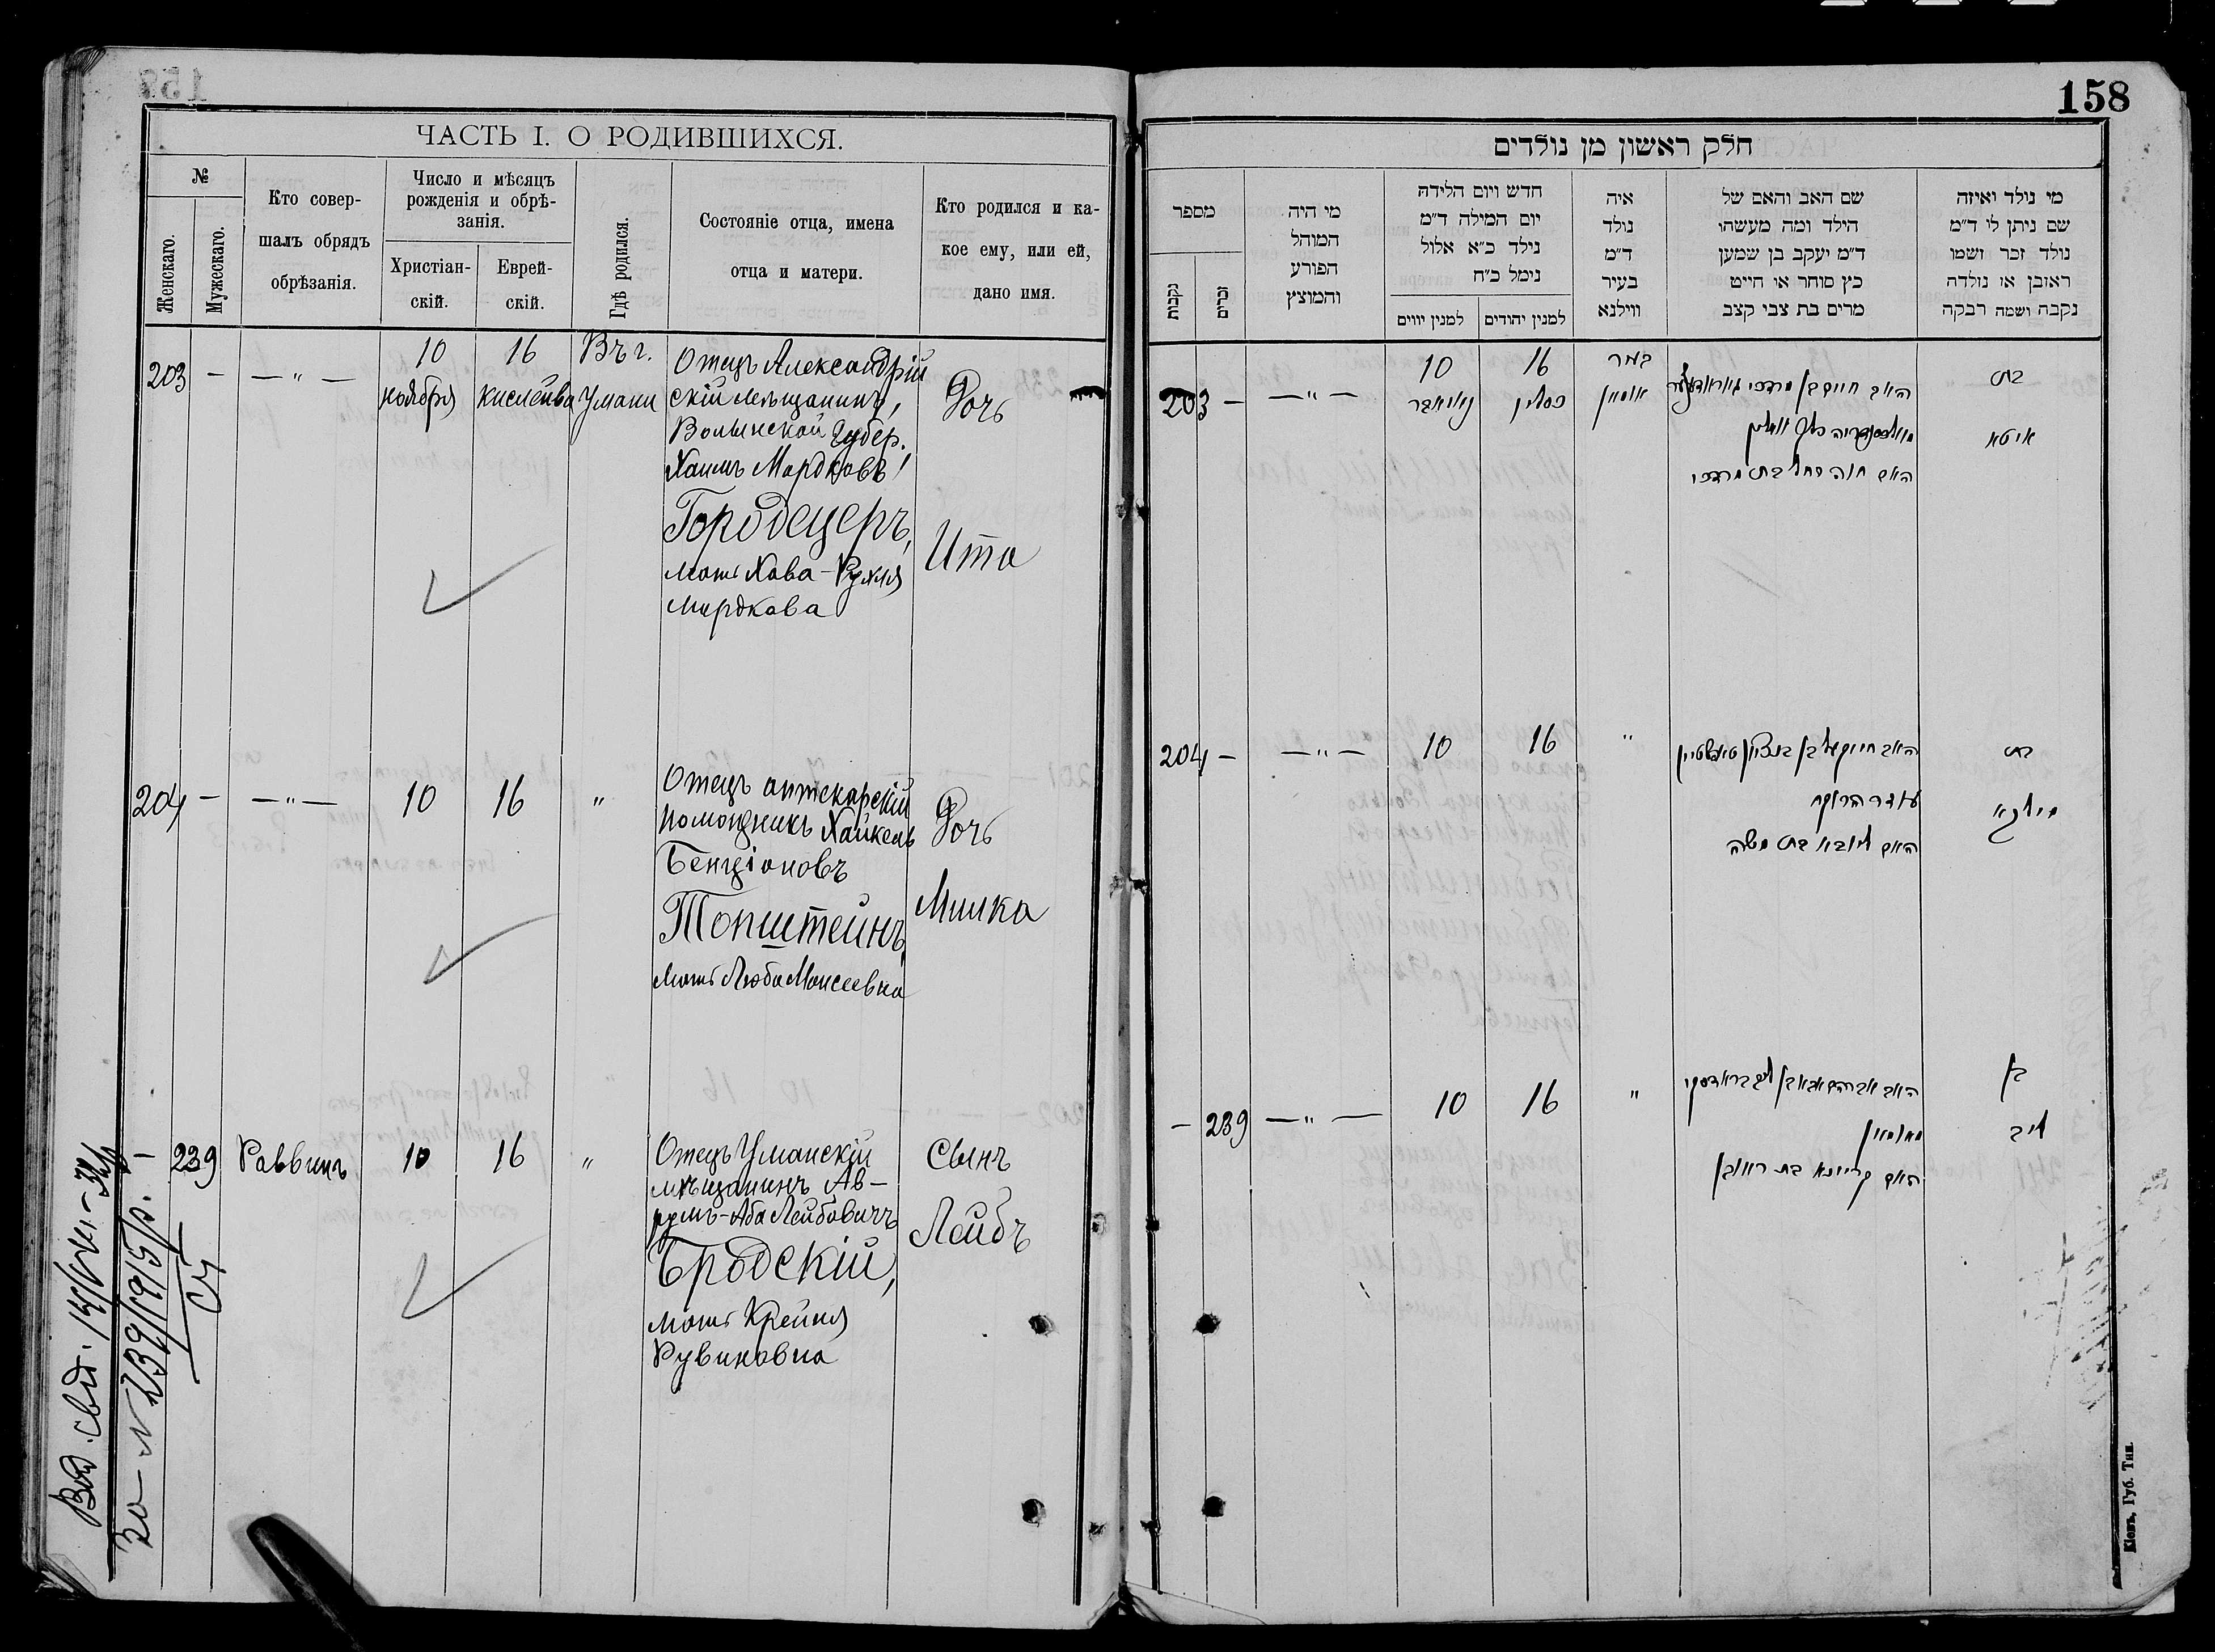 158
ЧАСТЬ I. О РОДИВШИХСЯ.
№
Женскаго.
Мужескаго.
Кто совер-
шалъ обрядъ
обрѣзанія.
Число и мѣсяцъ
рожденія и обрѣ-
занія.
Христіан-
скій.
Еврей-
скій.
Гдѣ родился.
Состояніе отца, имена
отца и матери.
Кто родился и ка-
кое ему, или ей,
дано имя.
203 — — " —
10
ноября
16
кислейва
Въ г.
Умани
Отецъ Александрій
скій мѣщанинъ,
Волынской Губер.,
Хаимъ Мордковъ
Городецеръ,
мать Хава-Рухля
Мордкова
Дочь
Ита
204 — — " — 10 16 "
Отецъ аптекарскій
помощникъ Хайкель
Бенціоновъ
Топштейнъ,
мать Люба Моисеевна
Дочь
Милка
— 239 Раввинъ 10 16 "
Отецъ Уманскій
мѣщанинъ Ав-
румъ-Аба Лейбовичъ
Бродскій,
мать Крейня
Рувиновна
Сынъ
Лейбъ
за № 239/1915 г.
חלק ראשון מן נולדים
מספר
נקבות
זכרים
מי היה
המוהל
הפורע
והמוצץ
חדש ויום הלידה
יום המילה ד"מ
נילד כ"א אלול
נימל כ"ח
למנין יווים
למנין יהודים
איה
נולד
ד"מ
בעיר
ווילנא
שם האב והאם של
הילד ומה מעשהו
ד"מ יעקב בן שמען
כץ סוחר או חייט
מרים בת צבי קצב
מי נולד ואיזה
שם ניתן לי ד"מ
נולד זכר ושמו
ראובן או נולדה
נקבה ושמה רבקה
203 — — " —
10
נאיאבר
16
כסלין
אומאן
האב חיים בן מרדכי גאראדעצער
האם חוה רחל בת מרדכי
בת
איטא
204 — — " — 10 16 "
האב חייקל בן בנציון טאפשטיין
עוזר הרוקח
האם ליובא בת משה
בת
מילקא
— 239 — " — 10 16 "
האב אברהם אבא בן ליב בראדסקי
מאומאן
האם קריינא בת ראובן
בן
ליב
Кіевъ, Губ. Тип.